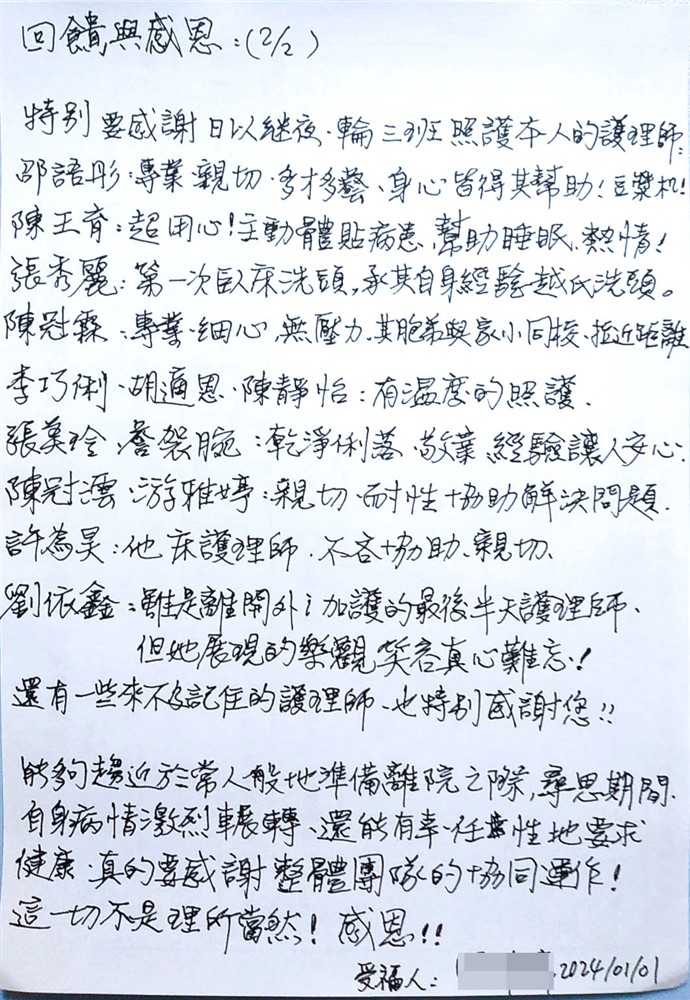 回饋與感恩:(2/2)
特別要感謝日以継夜、輪三班照護本人的護理師:
邵語彤:專業、親切、多才多藝、身心皆得其幫助!豆漿机!
陳王育:超用心!主動體貼病患、幫助睡眠、熱情!
張秀麗:第一次臥床洗頭,承其自身經驗越氏洗頭。
陳冠霖:專業、細心、無壓力、其胞弟與家小同校、拉近距離
李巧俐、胡適恩、陳靜怡:有溫度的照護、
張萬玲、詹袈腕:乾淨俐落、敬業、經驗讓人安心、
陳冠澐、游雅婷:親切、耐性、協助解決問題、
許為昊:他床護理師、不吝協助、親切、
劉依鑫:雖是離開外i加護的最後半天護理師、
但她展現的樂觀笑容真心難忘!
還有一些來不及記住的護理師、也特別感謝您!!
能夠趨近於常人般地準備離院之際,尋思期間、
自身病情激烈輾轉、還能有幸、任性地要求
健康、真的要感謝整體團隊的協同運作!
這一切不是理所當然!感恩!!
受福人: 2024/01/01